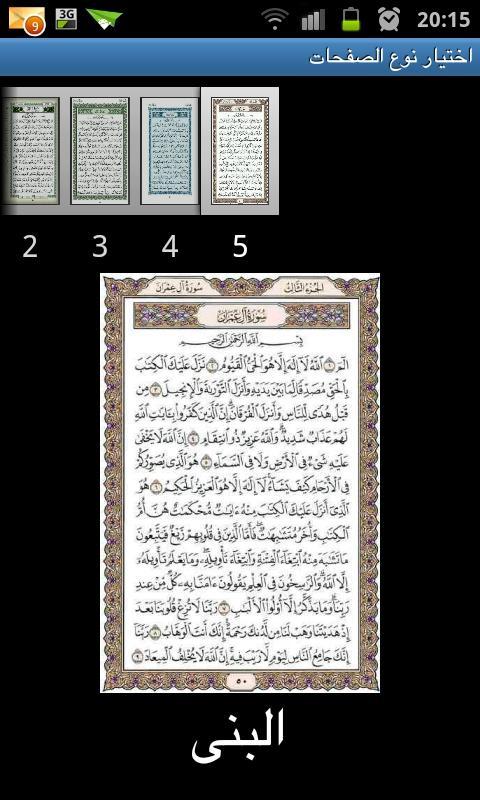 9
3G
20:15
اختيار نوع الصفحات
2 3 4 5
الجزء الثالث
سورة آل عمران
سُورَةُ آلِ عِمْرَانَ
بِسْمِ اللَّهِ الرَّحْمَٰنِ الرَّحِيمِ
الٓمٓ ١ ٱللَّهُ لَآ إِلَٰهَ إِلَّا هُوَ ٱلْحَىُّ ٱلْقَيُّومُ ٢ نَزَّلَ عَلَيْكَ ٱلْكِتَٰبَ
بِٱلْحَقِّ مُصَدِّقًا لِّمَا بَيْنَ يَدَيْهِ وَأَنزَلَ ٱلتَّوْرَىٰةَ وَٱلْإِنجِيلَ ٣ مِن
قَبْلُ هُدًى لِّلنَّاسِ وَأَنزَلَ ٱلْفُرْقَانَ إِنَّ ٱلَّذِينَ كَفَرُوا۟ بِـَٔايَٰتِ ٱللَّهِ
لَهُمْ عَذَابٌ شَدِيدٌ وَٱللَّهُ عَزِيزٌ ذُو ٱنتِقَامٍ ٤ إِنَّ ٱللَّهَ لَا يَخْفَىٰ
عَلَيْهِ شَىْءٌ فِى ٱلْأَرْضِ وَلَا فِى ٱلسَّمَآءِ ٥ هُوَ ٱلَّذِى يُصَوِّرُكُمْ
فِى ٱلْأَرْحَامِ كَيْفَ يَشَآءُ لَآ إِلَٰهَ إِلَّا هُوَ ٱلْعَزِيزُ ٱلْحَكِيمُ ٦ هُوَ
ٱلَّذِىٓ أَنزَلَ عَلَيْكَ ٱلْكِتَٰبَ مِنْهُ ءَايَٰتٌ مُّحْكَمَٰتٌ هُنَّ أُمُّ
ٱلْكِتَٰبِ وَأُخَرُ مُتَشَٰبِهَٰتٌ فَأَمَّا ٱلَّذِينَ فِى قُلُوبِهِمْ زَيْغٌ فَيَتَّبِعُونَ
مَا تَشَٰبَهَ مِنْهُ ٱبْتِغَآءَ ٱلْفِتْنَةِ وَٱبْتِغَآءَ تَأْوِيلِهِۦ وَمَا يَعْلَمُ تَأْوِيلَهُۥٓ
إِلَّا ٱللَّهُ وَٱلرَّٰسِخُونَ فِى ٱلْعِلْمِ يَقُولُونَ ءَامَنَّا بِهِۦ كُلٌّ مِّنْ عِندِ
رَبِّنَا وَمَا يَذَّكَّرُ إِلَّآ أُو۟لُوا۟ ٱلْأَلْبَٰبِ ٧ رَبَّنَا لَا تُزِغْ قُلُوبَنَا بَعْدَ
إِذْ هَدَيْتَنَا وَهَبْ لَنَا مِن لَّدُنكَ رَحْمَةً إِنَّكَ أَنتَ ٱلْوَهَّابُ ٨ رَبَّنَآ
إِنَّكَ جَامِعُ ٱلنَّاسِ لِيَوْمٍ لَّا رَيْبَ فِيهِ إِنَّ ٱللَّهَ لَا يُخْلِفُ ٱلْمِيعَادَ ٩
٥٠
البنى